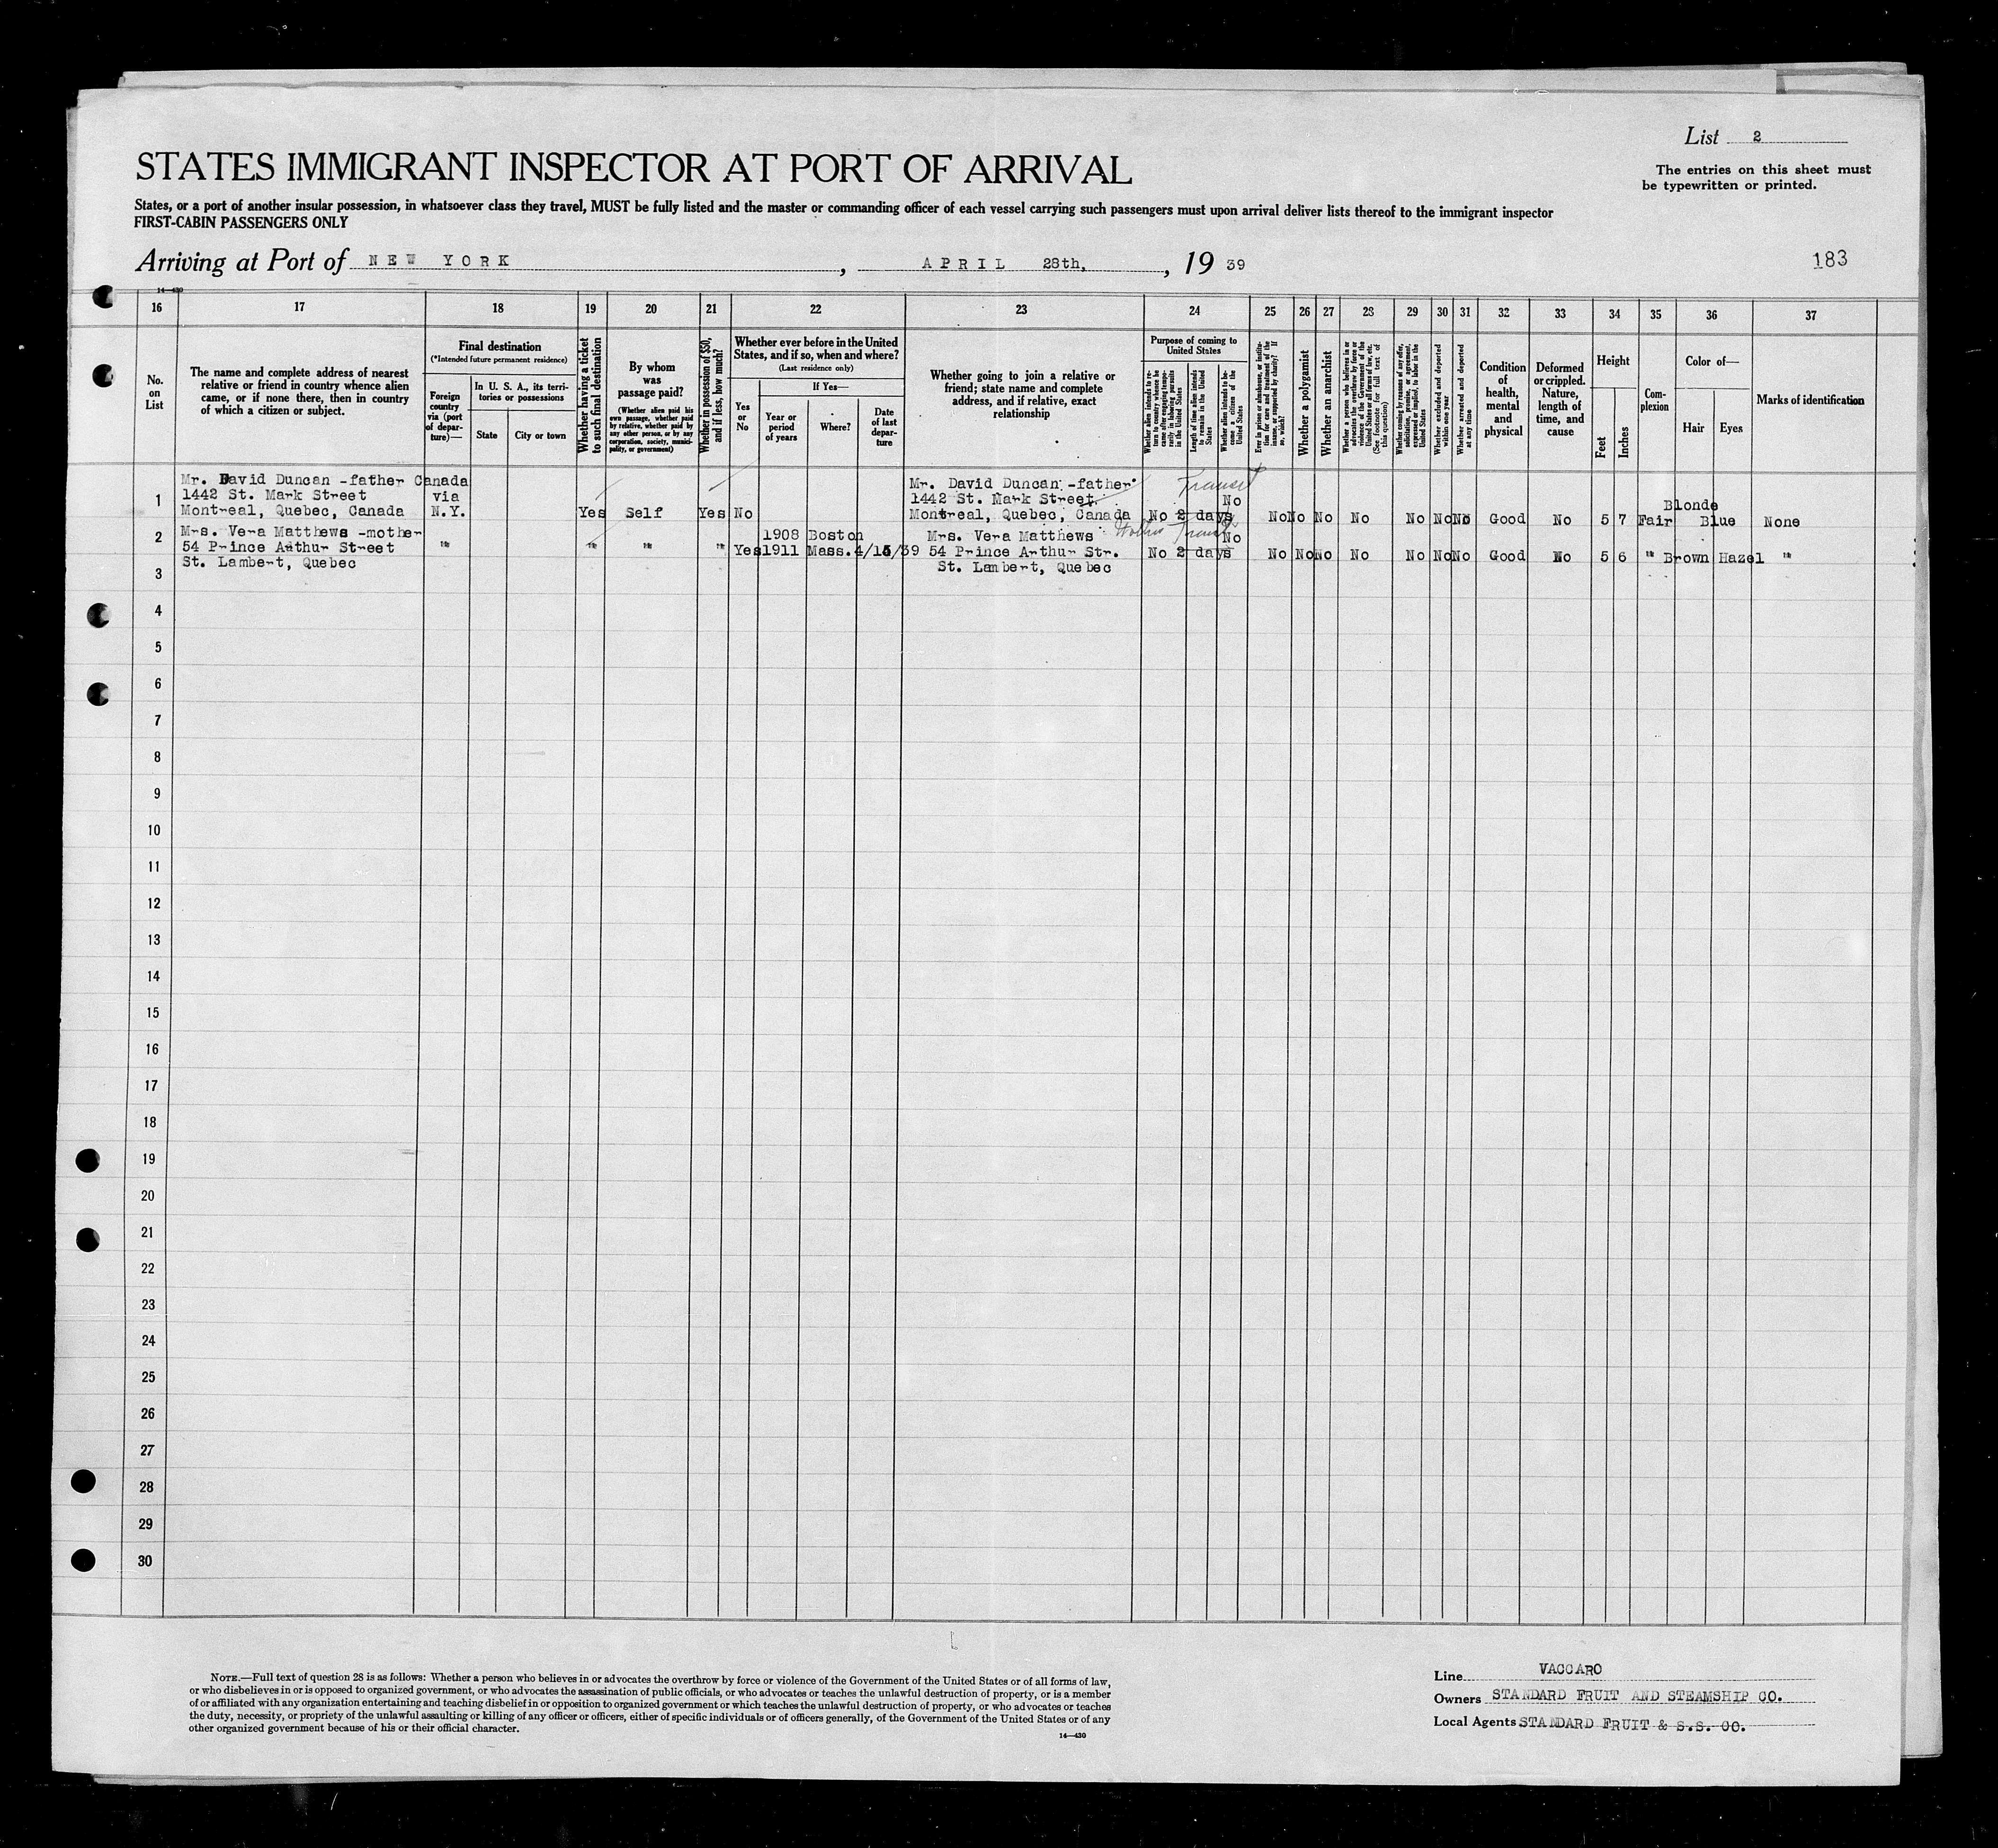 List 2
The entries on this sheet must
be typewritten or printed.
STATES IMMIGRANT INSPECTOR AT PORT OF ARRIVAL
States, or a port of another insular possession, in whatsoever class they travel, MUST be fully listed and the master or commanding officer of each vessel carrying such passengers must upon arrival deliver lists thereof to the immigrant inspector
FIRST-CABIN PASSENGERS ONLY
Arriving at Port of NEW YORK, APRIL 28th, 1939
183
14—430
16 17 18 19 20 21 22 23 24 25 26 27 28 29 30 31 32 33 34 35 36 37
No.
on
List
The name and complete address of nearest
relative or friend in country whence alien
came, or if none there, then in country
of which a citizen or subject.
Final destination
(*Intended future permanent residence)
Foreign
country
via (port
of depar-
ture)—
In U. S. A., its terri-
tories or possessions
State
City or town
Whether having a ticket
to such final destination
By whom
was
passage paid?
(Whether alien paid his
own passage, whether paid
by relative, whether paid by
any other person, or by any
corporation, society, munici-
pality, or government)
Whether in possession of $50,
and if less, how much?
Whether ever before in the United
States, and if so, when and where?
(Last residence only)
Yes
or
No
If Yes—
Year or
period
of years
Where?
Date
of last
depar-
ture
Whether going to join a relative or
friend; state name and complete
address, and if relative, exact
relationship
Purpose of coming to
United States
Whether alien intends to re-
turn to country whence he
came after engaging tempo-
rarily in laboring pursuits
in the United States
Length of time alien intends
to remain in the United
States
Whether alien intends to be-
come a citizen of the
United States
Ever in prison or almshouse, or institu-
tion for care and treatment of the
insane, or supported by charity? If
so, which?
Whether a polygamist
Whether an anarchist
Whether a person who believes in or
advocates the overthrow by force or
violence of the Government of the
United States or all forms of law, etc.
(See footnote for full text of
this question)
Whether coming by reasons of any offer,
solicitation, promise, or agreement,
expressed or implied, to labor in the
United States
Whether excluded and deported
within one year
Whether arrested and deported
at any time
Condition
of
health,
mental
and
physical
Deformed
or crippled.
Nature,
length of
time, and
cause
Height
Feet
Inches
Com-
plexion
Color of—
Hair
Eyes
Marks of identification
Mr. David Duncan -father Canada Mr. David Duncan -father Transit
1 1442 St. Mark Street via 1442 St. Mark Street No Blonde
Montreal, Quebec, Canada N.Y. Yes Self Yes No Montreal, Quebec, Canada No 2 days No No No No No No No Good No 5 7 Fair Blue None
2 Mrs. Vera Matthews -mother 1908 Boston Mrs. Vera Matthews Transit No
54 Prince Arthur Street " " " " Yes 1911 Mass. 4/15/39 54 Prince Arthur Str. No 2 days No No No No No No No Good No 5 6 " Brown Hazel "
3 St. Lambert, Quebec St. Lambert, Quebec
4
5
6
7
8
9
10
11
12
13
14
15
16
17
18
19
20
21
22
23
24
25
26
27
28
29
30
NOTE.—Full text of question 28 is as follows: Whether a person who believes in or advocates the overthrow by force or violence of the Government of the United States or of all forms of law,
or who disbelieves in or is opposed to organized government, or who advocates the assassination of public officials, or who advocates or teaches the unlawful destruction of property, or is a member
of or affiliated with any organization entertaining and teaching disbelief in or opposition to organized government or which teaches the unlawful destruction of property, or who advocates or teaches
the duty, necessity, or propriety of the unlawful assaulting or killing of any officer or officers, either of specific individuals or of officers generally, of the Government of the United States or of any
other organized government because of his or their official character.
14—430
Line VACCARO
Owners STANDARD FRUIT AND STEAMSHIP CO.
Local Agents STANDARD FRUIT & S.S. CO.